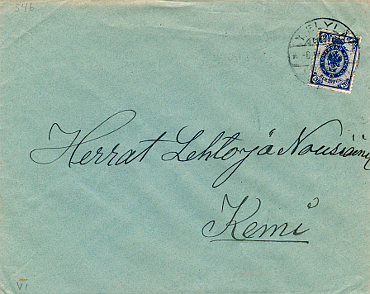 346
Herrat Lehto ja Nousiäinen
Kemi
VI